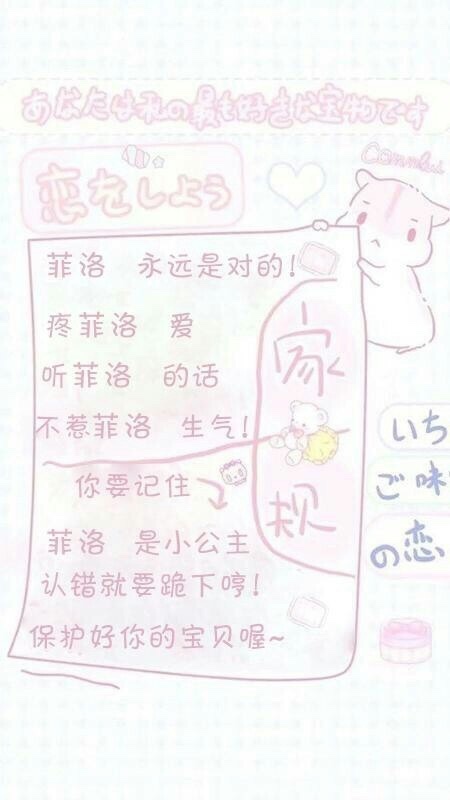 あなたは私の最も好きな宝物です
恋をしよう
菲洛 永远是对的!
疼菲洛 爱
听菲洛 的话
不惹菲洛 生气!
家规
你要记住
菲洛 是小公主
认错就要跪下哼!
保护好你的宝贝喔~
いち
ご味
の恋